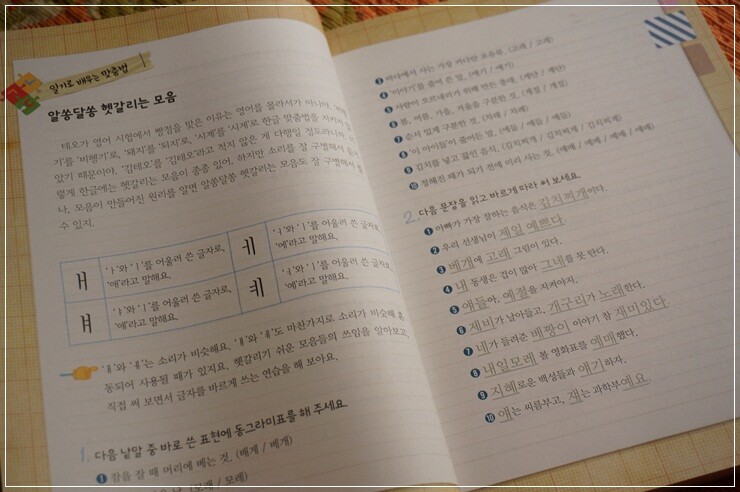 일기로 배우는 맞춤법
알쏭달쏭 헷갈리는 모음
테오가 영어 시험에서 빵점을 맞은 이유는 영어를 몰라서가 아니야.
기'를 '비헹기'로, '돼지'를 '되지'로, '사계'를 '시계'로 한글 맞춤법을 지키지
았기 때문이야. '김태오'를 '김테오'라고 적지 않은 게 다행일 정도라니까.
렇게 한글에는 헷갈리는 모음이 종종 있어. 하지만 소리를 잘 구별해서
나, 모음이 만들어진 원리를 알면 알쏭달쏭 헷갈리는 모음도 잘 구별해서 쓸
수 있지.
ㅐ 'ㅏ'와 'ㅣ'를 어울러 쓴 글자로, '애'라고 말해요.
ㅔ 'ㅓ'와 'ㅣ'를 어울러 쓴 글자로, '에'라고 말해요.
ㅒ 'ㅑ'와 'ㅣ'를 어울러 쓴 글자로, '얘'라고 말해요.
ㅖ 'ㅕ'와 'ㅣ'를 어울러 쓴 글자로, '예'라고 말해요.
'ㅐ'와 'ㅔ'는 소리가 비슷해요. 'ㅒ'와 'ㅖ'도 마찬가지로 소리가 비슷해 혼
동되어 사용될 때가 있지요. 헷갈리기 쉬운 모음들의 쓰임을 알아보고,
직접 써 보면서 글자를 바르게 쓰는 연습을 해 보아요.
1. 다음 낱말 중 바로 쓴 표현에 동그라미표를 해 주세요.
❶ 잠을 잘 때 머리에 베는 것. (배게 / 베개)
(모래 / 모레)
❸ 바다에서 사는 가장 커다란 포유류. (고래 / 고레)
❹ '이야기'를 줄여 쓴 말. (얘기 / 예기)
❺ 사람이 오르내리기 위해 만든 층대. (계단 / 게단)
❻ 봄, 여름, 가을, 겨울을 구분한 것. (계절 / 게절)
❼ 순서 있게 구분한 것. (차례 / 차레)
❽ '이 아이들'이 줄어든 말. (얘들 / 애들 / 예들)
❾ 김치를 넣고 끓인 음식. (김치찌개 / 김치찌게)
❿ 정해진 때가 되기 전에 미리 사는 것. (예매 / 예메 / 얘매 / 애매)
2. 다음 문장을 읽고 바르게 따라 써 보세요.
❶ 아빠가 가장 잘하는 음식은 김치찌개이다.
❷ 우리 선생님이 제일 예쁘다.
❸ 베개에 고래 그림이 있다.
❹ 내 동생은 겁이 많아 그네를 못 탄다.
❺ 얘들아, 예절을 지켜야지.
❻ 제비가 날아들고, 개구리가 노래한다.
❼ 네가 들려준 베짱이 이야기 참 재미있다.
❽ 내일모레 볼 영화표를 예매했다.
❾ 지혜로운 백성들과 얘기하자.
❿ 얘는 씨름부고, 쟤는 과학부예요.